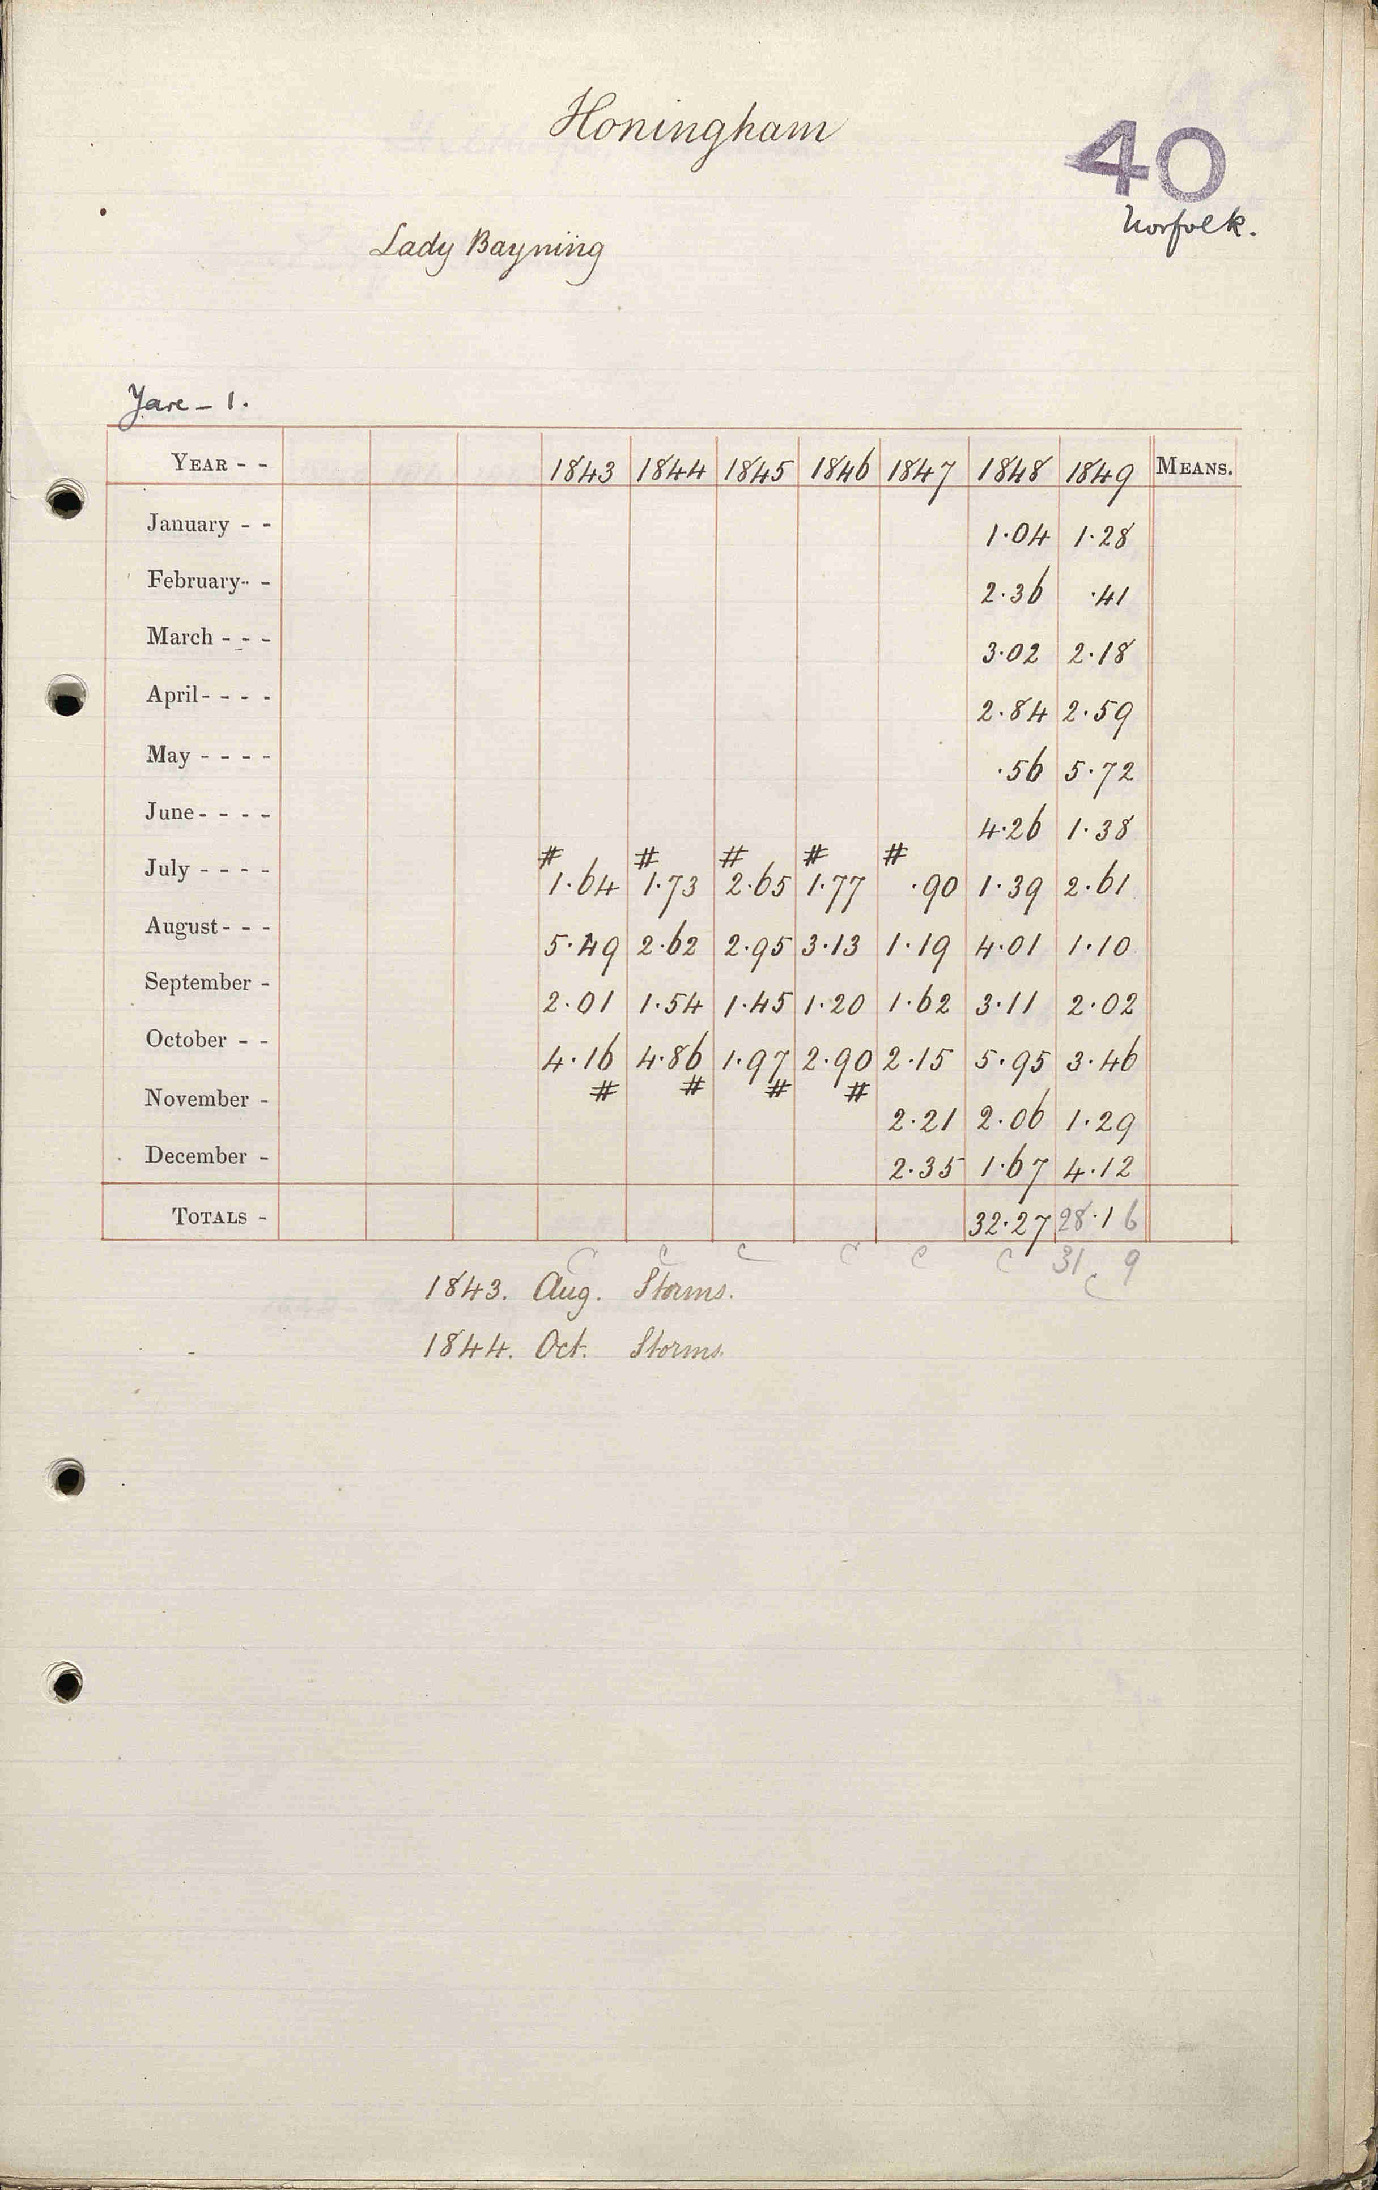 Honingham
40
Norfolk.
Lady Bayning
Yare - 1.
YEAR - - 1843 1844 1845 1846 1847 1848 1849 MEANS.
January - - 1·04 1·28
February - - 2·36 ·41
March - - - 3·02 2·18
April - - - - 2·84 2·59
May - - - - ·56 5·72
June - - - - 4·26 1·38
# # # # #
July - - - - 1·64 1·73 2·65 1·77 ·90 1·39 2·61
August - - - 5·49 2·62 2·95 3·13 1·19 4·01 1·10
September - 2·01 1·54 1·45 1·20 1·62 3·11 2·02
October - - 4·16 4·86 1·97 2·90 2·15 5·95 3·46
# # # #
November - 2·21 2·06 1·29
December - 2·35 1·67 4·12
TOTALS - 32·27 28·16
c c c c c c 31 9
c
1843. Aug. Storms.
1844. Oct. Storms.